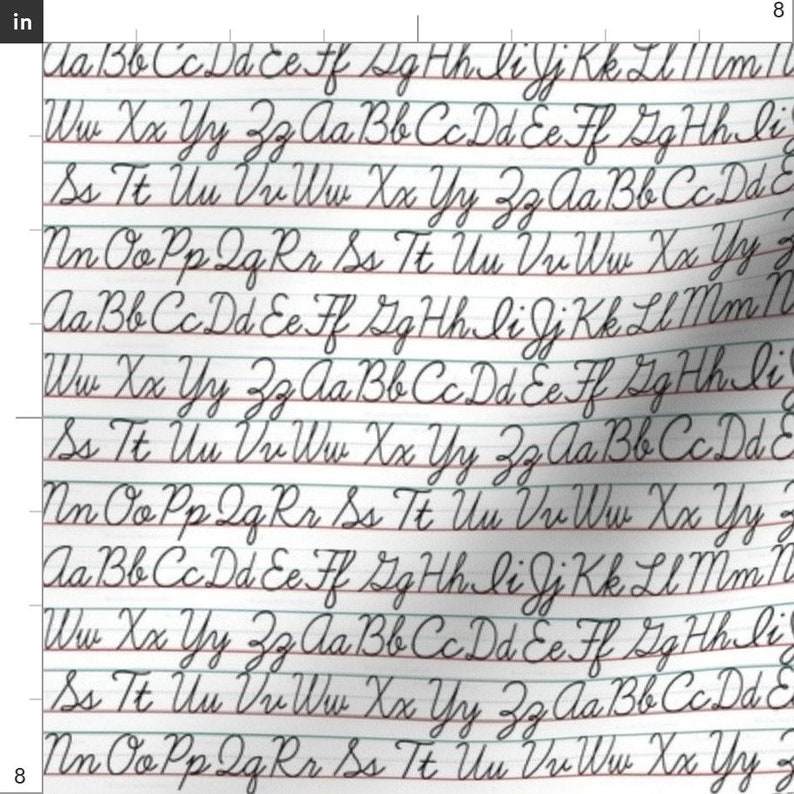 in
8
Aa Bb Cc Dd Ee Ff Gg Hh Ii Jj Kk Ll Mm N
Ww Xx Yy Zz Aa Bb Cc Dd Ee Ff Gg Hh Ii
Ss Tt Uu Vv Ww Xx Yy Zz Aa Bb Cc Dd E
Nn Oo Pp Qq Rr Ss Tt Uu Vv Ww Xx Yy Z
Aa Bb Cc Dd Ee Ff Gg Hh Ii Jj Kk Ll Mm N
Ww Xx Yy Zz Aa Bb Cc Dd Ee Ff Gg Hh Ii
Ss Tt Uu Vv Ww Xx Yy Zz Aa Bb Cc Dd E
Nn Oo Pp Qq Rr Ss Tt Uu Vv Ww Xx Yy Z
Aa Bb Cc Dd Ee Ff Gg Hh Ii Jj Kk Ll Mm N
Ww Xx Yy Zz Aa Bb Cc Dd Ee Ff Gg Hh Ii
Ss Tt Uu Vv Ww Xx Yy Zz Aa Bb Cc Dd E
Nn Oo Pp Qq Rr Ss Tt Uu Vv Ww Xx Yy Z
8